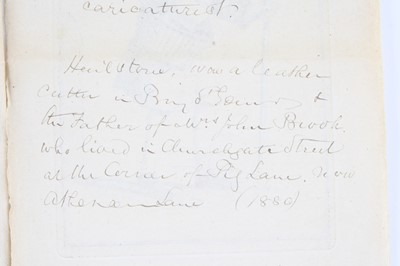 caricaturist.
Headstone, was a leather
cutter in Bury St Edmunds &
the Father of a Mrs John Brook,
who lived in Churchgate Street
at the Corner of Pig Lane. Now
Athenæum Lane (1880)